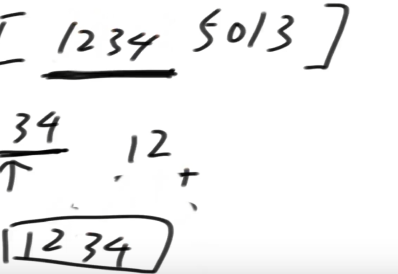 [ 1234 5013 ]
34 12 +
↑
11234